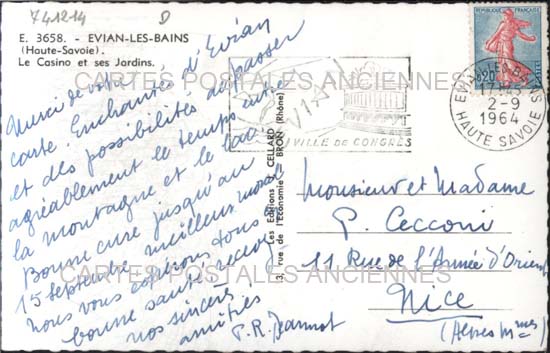 741214 D
E. 3658. - EVIAN-LES-BAINS
(Haute-Savoie).
Le Casino et ses Jardins.
Merci de votre
carte. Enchantés d'Evian
et des possibilités de passer
agréablement le temps entre
la montagne et le lac.
Bonne cure jusqu'au
15 septembre
nous vous espérons tous
bonne santé
nos sincères
amitiés
P.R. Jeannot
Les Editions CELLARD
3, rue de l'Economie - BRON (Rhône)
EVIAN
VILLE DE CONGRES
REPUBLIQUE FRANÇAISE
0,20
EVIAN-LES-BAINS
2-9
1964
HAUTE SAVOIE
Monsieur et Madame
P. Cecconi
11 Rue de l'Armée d'Orient
Nice
(Alpes Mmes)
CARTES POSTALES ANCIENNES
CARTES POSTALES ANCIENNES